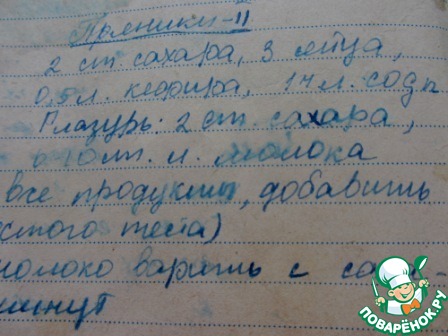 Пряники-II
2 ст. сахара, 3 яйца,
0,5 л. кефира, 1 ч л. соды
Глазурь: 2 ст. сахара,
10 ст. л. молока
все продукты, добавить
густого теста)
молоко варить с саха-
минут
ПОВАРЁНОК.РУ